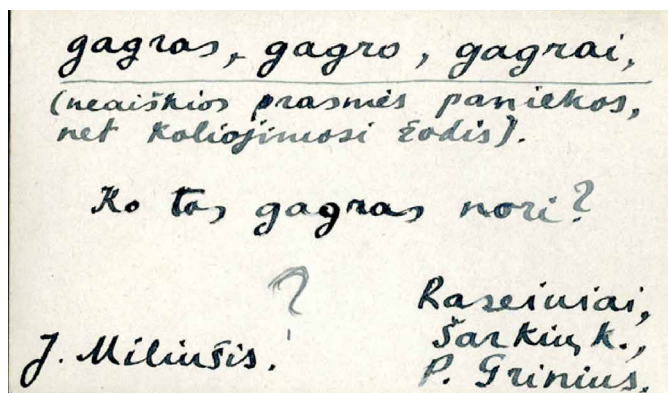 gagras, gagro, gagrai,
(neaiškios prasmės paniekos,
net koliojimosi žodis).
Ko tas gagras nori?
?
Raseiniai,
Šarkių k.,
J. Miliušis.
P. Grinius.